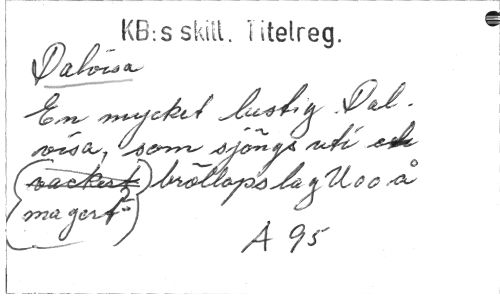 KB:s skill. Titelreg.
Dalvisa
En mycket lustig Dal-
visa, som sjöngs uti och
(vackert) bröllopslag U oo å
(magert=)
A 95